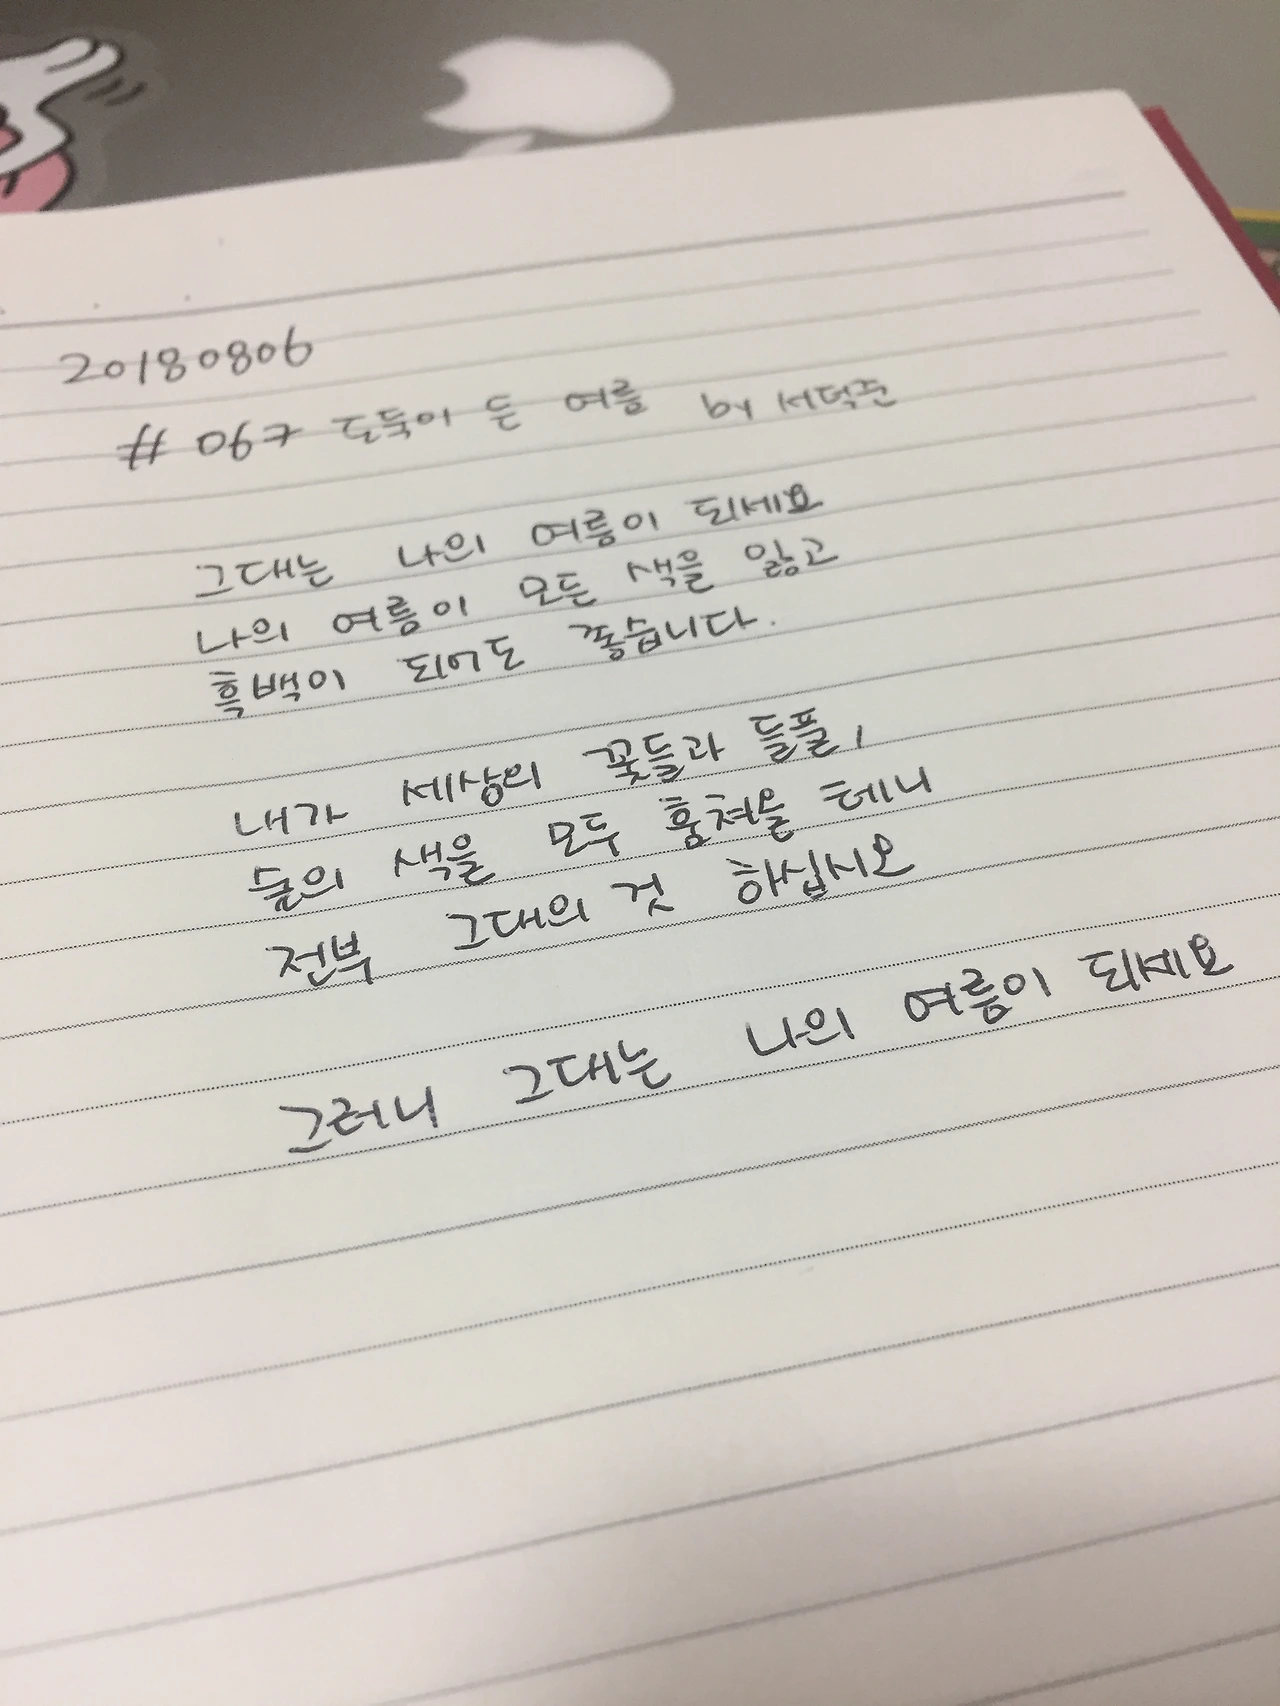 20180806
# 067 도둑이 든 여름 by 서덕준
그대는 나의 여름이 되세요
나의 여름이 모든 색을 잃고
흑백이 되어도 좋습니다.
내가 세상의 꽃들과 들풀,
숲의 색을 모두 훔쳐올 테니
전부 그대의 것 하십시오
그러니 그대는 나의 여름이 되세요